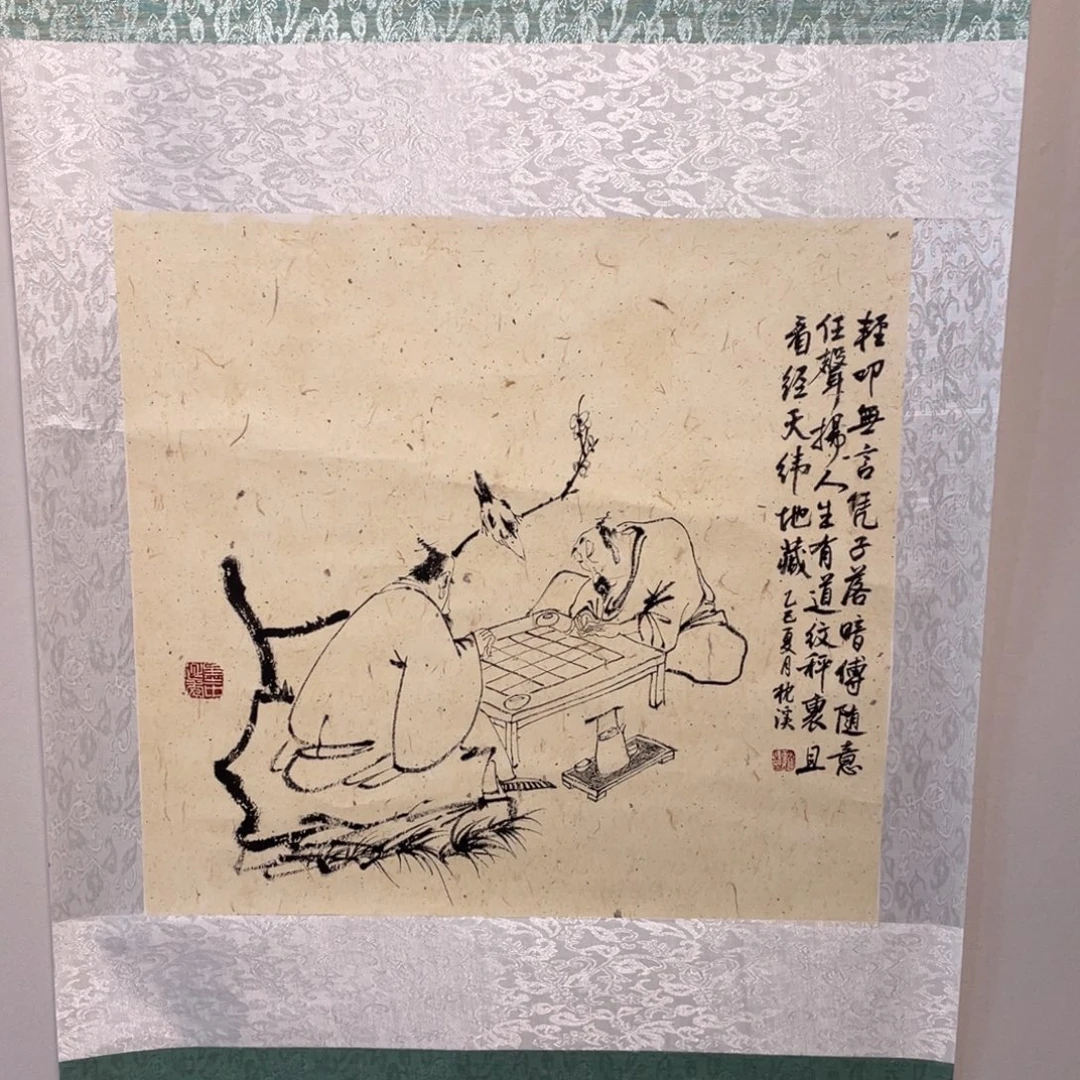 輕叩無言凭子落暗傅随意
任聲揚人生有道紋秤裏且
看经天纬地藏
乙巳夏月枕溪